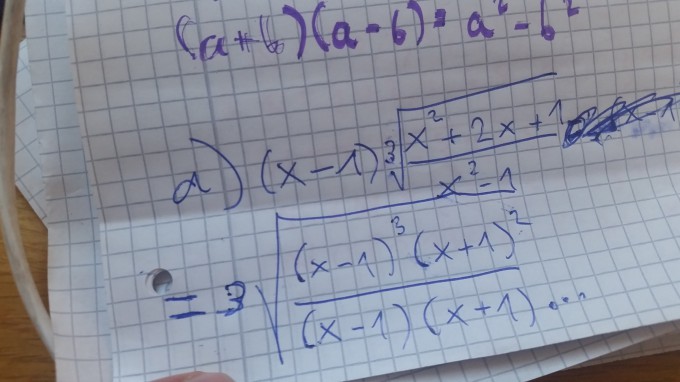 (a+b)(a-b)=a²-b²
a) (x-1) ³√((x²+2x+1)/(x²-1))
= ³√(((x-1)³(x+1)²)/((x-1)(x+1))) ...